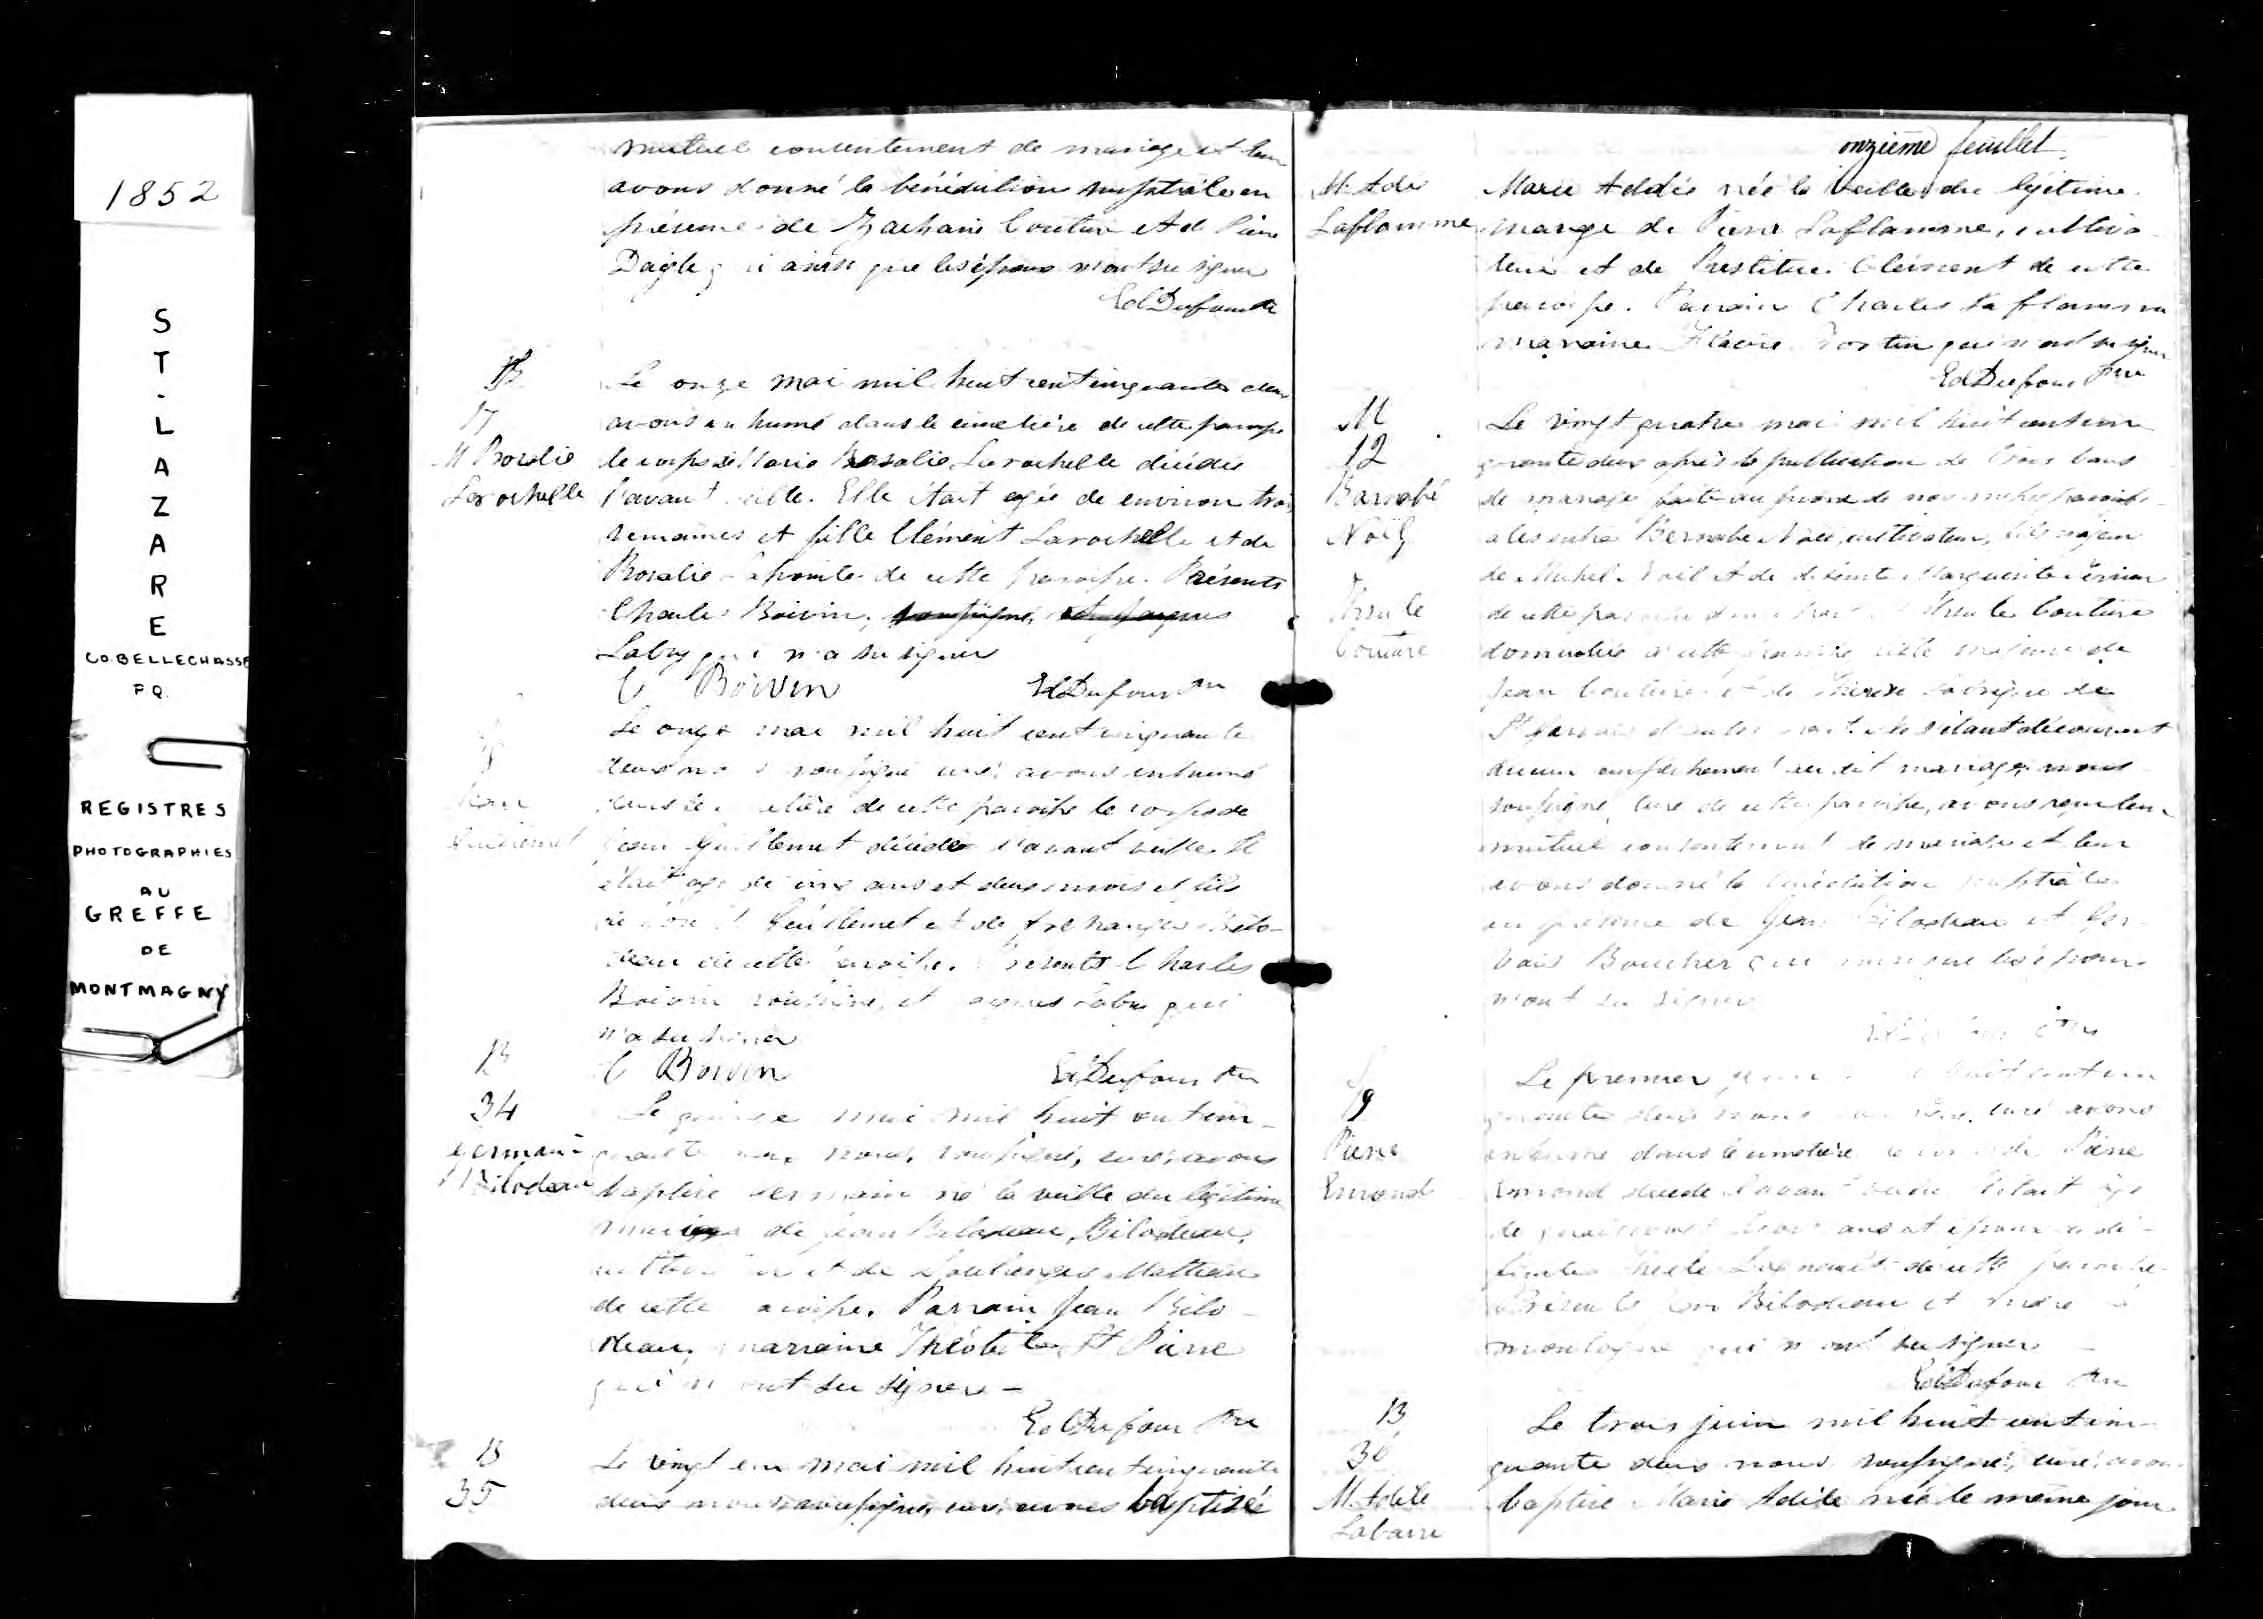 1852
ST. LAZARE
CO. BELLECHASSE
P.Q.
REGISTRES
PHOTOGRAPHIES
AU
GREFFE
DE
MONTMAGNY
mutuel consentement de mariage et leur
avons donné la bénédiction nuptiale en
présence de Zacharie Couture et de Pierre
Dagle qui ainsi que les époux n'ont su signer
Ed Dufour Ptre
17
M Rosalie
Larochelle
Le onze mai mil huit cent cinquante deux
avons inhumé dans le cimetière de cette paroisse
le corps de Marie Rosalie Larochelle décédée
l'avant veille. Elle était agée de environ trois
semaines et fille Clément Larochelle et de
Rosalie Lapointe de cette paroisse. Présents
Charles Boivin, soussigné, et Jacques
Labry qui n'a su signer
C Boivin Ed Dufour Ptre
Jean
Guillemet
Le onze mai mil huit cent cinquante
deux nous soussigné curé avons inhumé
dans le cimetière de cette paroisse le corps de
Jean Guillemet décédé l'avant veille. Il
était agé de cinq ans et deux mois et fils
de Guillemet et de Bilo-
deau de cette paroisse. Présents Charles
Boivin soussigné, et Jacques Labry qui
n'a su signer
C Boivin Ed Dufour Ptre
B
34
Germain
Bilodeau
Le quinze mai mil huit cent cin-
quante deux nous, soussigné, curé, avons
baptisé Germain né la veille du légitime
mariage de Jean Bilodeau, Bilodeau,
cultivateur et de Soulanges Mathieu
de cette paroisse. Parrain Jean Bilo-
deau, marraine Théotiste St Pierre
qui n'ont su signer -
Ed Dufour Ptre
B
35
Le vingt un mai mil huit cent cinquante
deux nous soussigné, curé, avons baptisé
onzième feuillet.
M. Adé
Laflamme
Marie Addée née la veille du légitime
mariage de Pierre Laflamme, cultiva-
teur et de Restitue Clément de cette
paroisse. Parrain Charles Laflamme
marraine Flavie Fortin qui n'ont su signer
Ed Dufour Ptre
M
12
Barnabé
Noël
Ursule
Couture
Le vingt quatre mai mil huit cent cin-
quante deux après la publication de trois bans
de mariage faite au prône de nos messes paroissi-
ales entre Bernabé Noël, cultivateur, fils majeur
de Michel Noël et de défunte Marguerite
de cette paroisse d'une part et Ursule Couture
domiciliée en cette paroisse fille majeure de
Jean Couture et de Thérèse de
St Gervais d'autre part ne s'étant découvert
aucun empêchement au dit mariage nous
soussigné, curé de cette paroisse, avons reçu leur
mutuel consentement de mariage et leur
avons donné la bénédiction nuptiale
en présence de Jean Bilodeau et Ger-
vais Boucher qui ainsi que les époux
n'ont su signer
Ed Dufour Ptre
S
19
Pierre
Emond
Le premier juin mil huit cent cin-
quante deux nous soussigné, curé avons
inhumé dans le cimetière le corps de Pierre
Emond décédé l'avant veille Il était agé
de quatrevingt trois ans et époux de dé-
funte de cette paroisse
Présents Bilodeau et André
Montagne qui n'ont su signer -
Ed Dufour Ptre
B
36
M. Adèle
Labarre
Le trois juin mil huit cent cin-
quante deux nous soussigné, curé, avons
baptisé Marie Adèle née le même jour